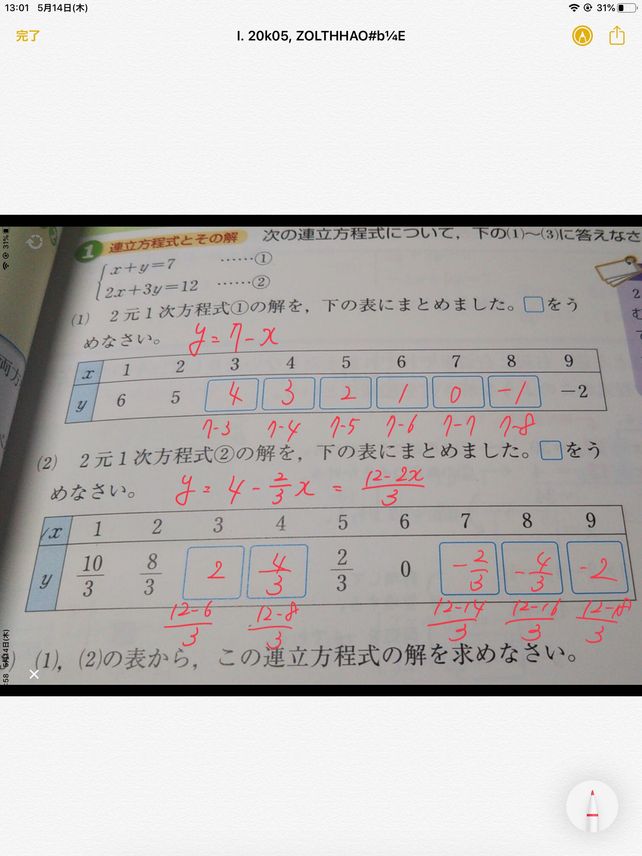 13:01 5月14日(木) 31%
完了 I. 20k05, ZOLTHHAO#b¼E
31%
1 連立方程式とその解 次の連立方程式について，下の(1)〜(3)に答えなさ
x+y=7 ……①
2x+3y=12 ……②
(1) 2元1次方程式①の解を，下の表にまとめました。□をう
めなさい。 y=7-x
x 1 2 3 4 5 6 7 8 9
y 6 5 4 3 2 1 0 -1 -2
7-3 7-4 7-5 7-6 7-7 7-8
(2) 2元1次方程式②の解を，下の表にまとめました。□をう
めなさい。 y=4-2/3x=12-2x/3
x 1 2 3 4 5 6 7 8 9
y 10/3 8/3 2 4/3 2/3 0 -2/3 -4/3 -2
12-6/3 12-8/3 12-14/3 12-16/3 12-18/3
(1)，(2)の表から，この連立方程式の解を求めなさい。